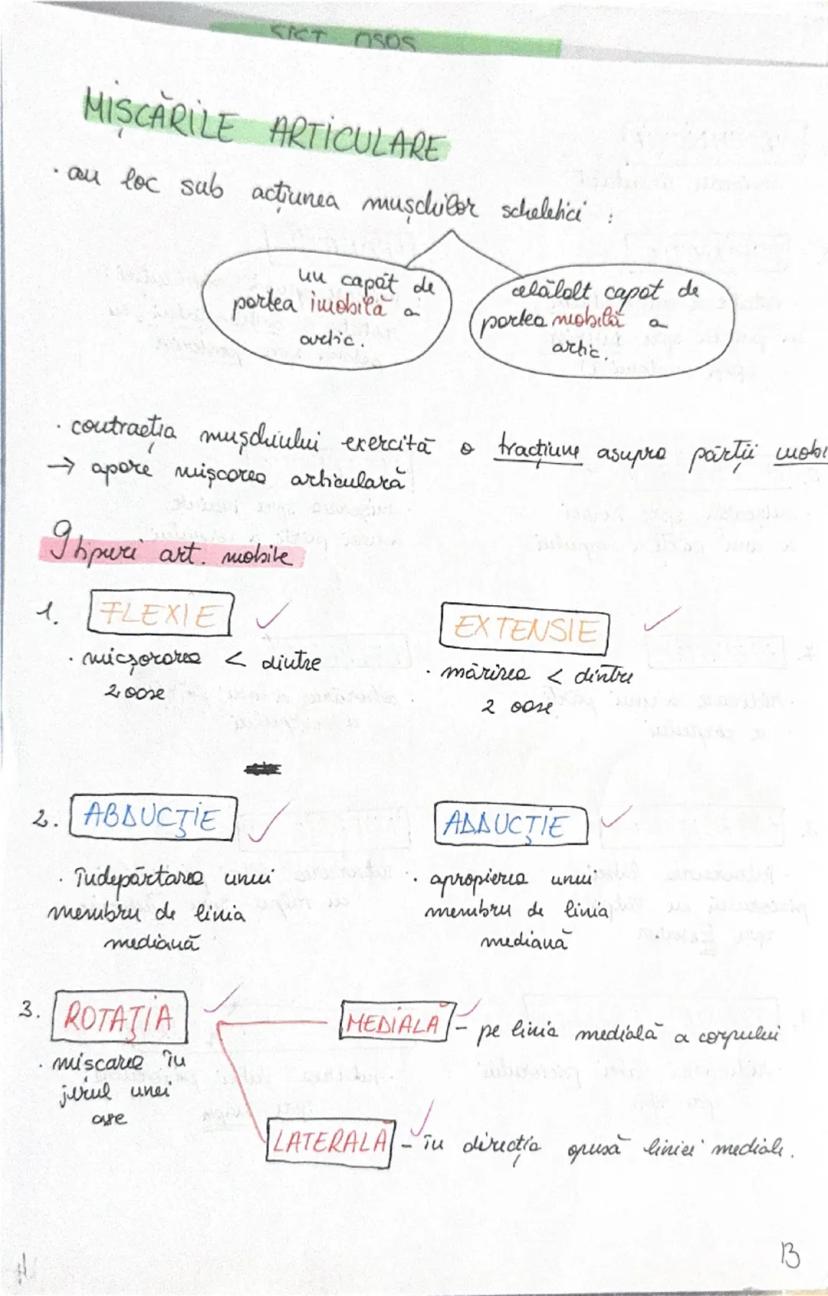 SIST OSOS
MIȘCĂRILE ARTICULARE
· au loc sub acțiunea mușchilor scheletici :
un capăt de
partea imobilă a
artic.
celălalt capăt de
partea mobilă a
artic.
· contracția mușchiului exercită o tracțiune asupra părții mobi
→ apare mișcarea articulară
9 tipuri art. mobile
1. FLEXIE
· micșorarea < dintre
2 oase
EXTENSIE
· mărirea < dintre
2 oase
2. ABDUCȚIE
· Îndepărtarea unui
membru de linia
mediană
ADDUCȚIE
· apropierea unui
membru de linia
mediană
3. ROTAȚIA
· mișcarea în
jurul unei
axe
MEDIALĂ - pe linia medială a corpului
LATERALĂ - în direcția opusă liniei mediale.
13